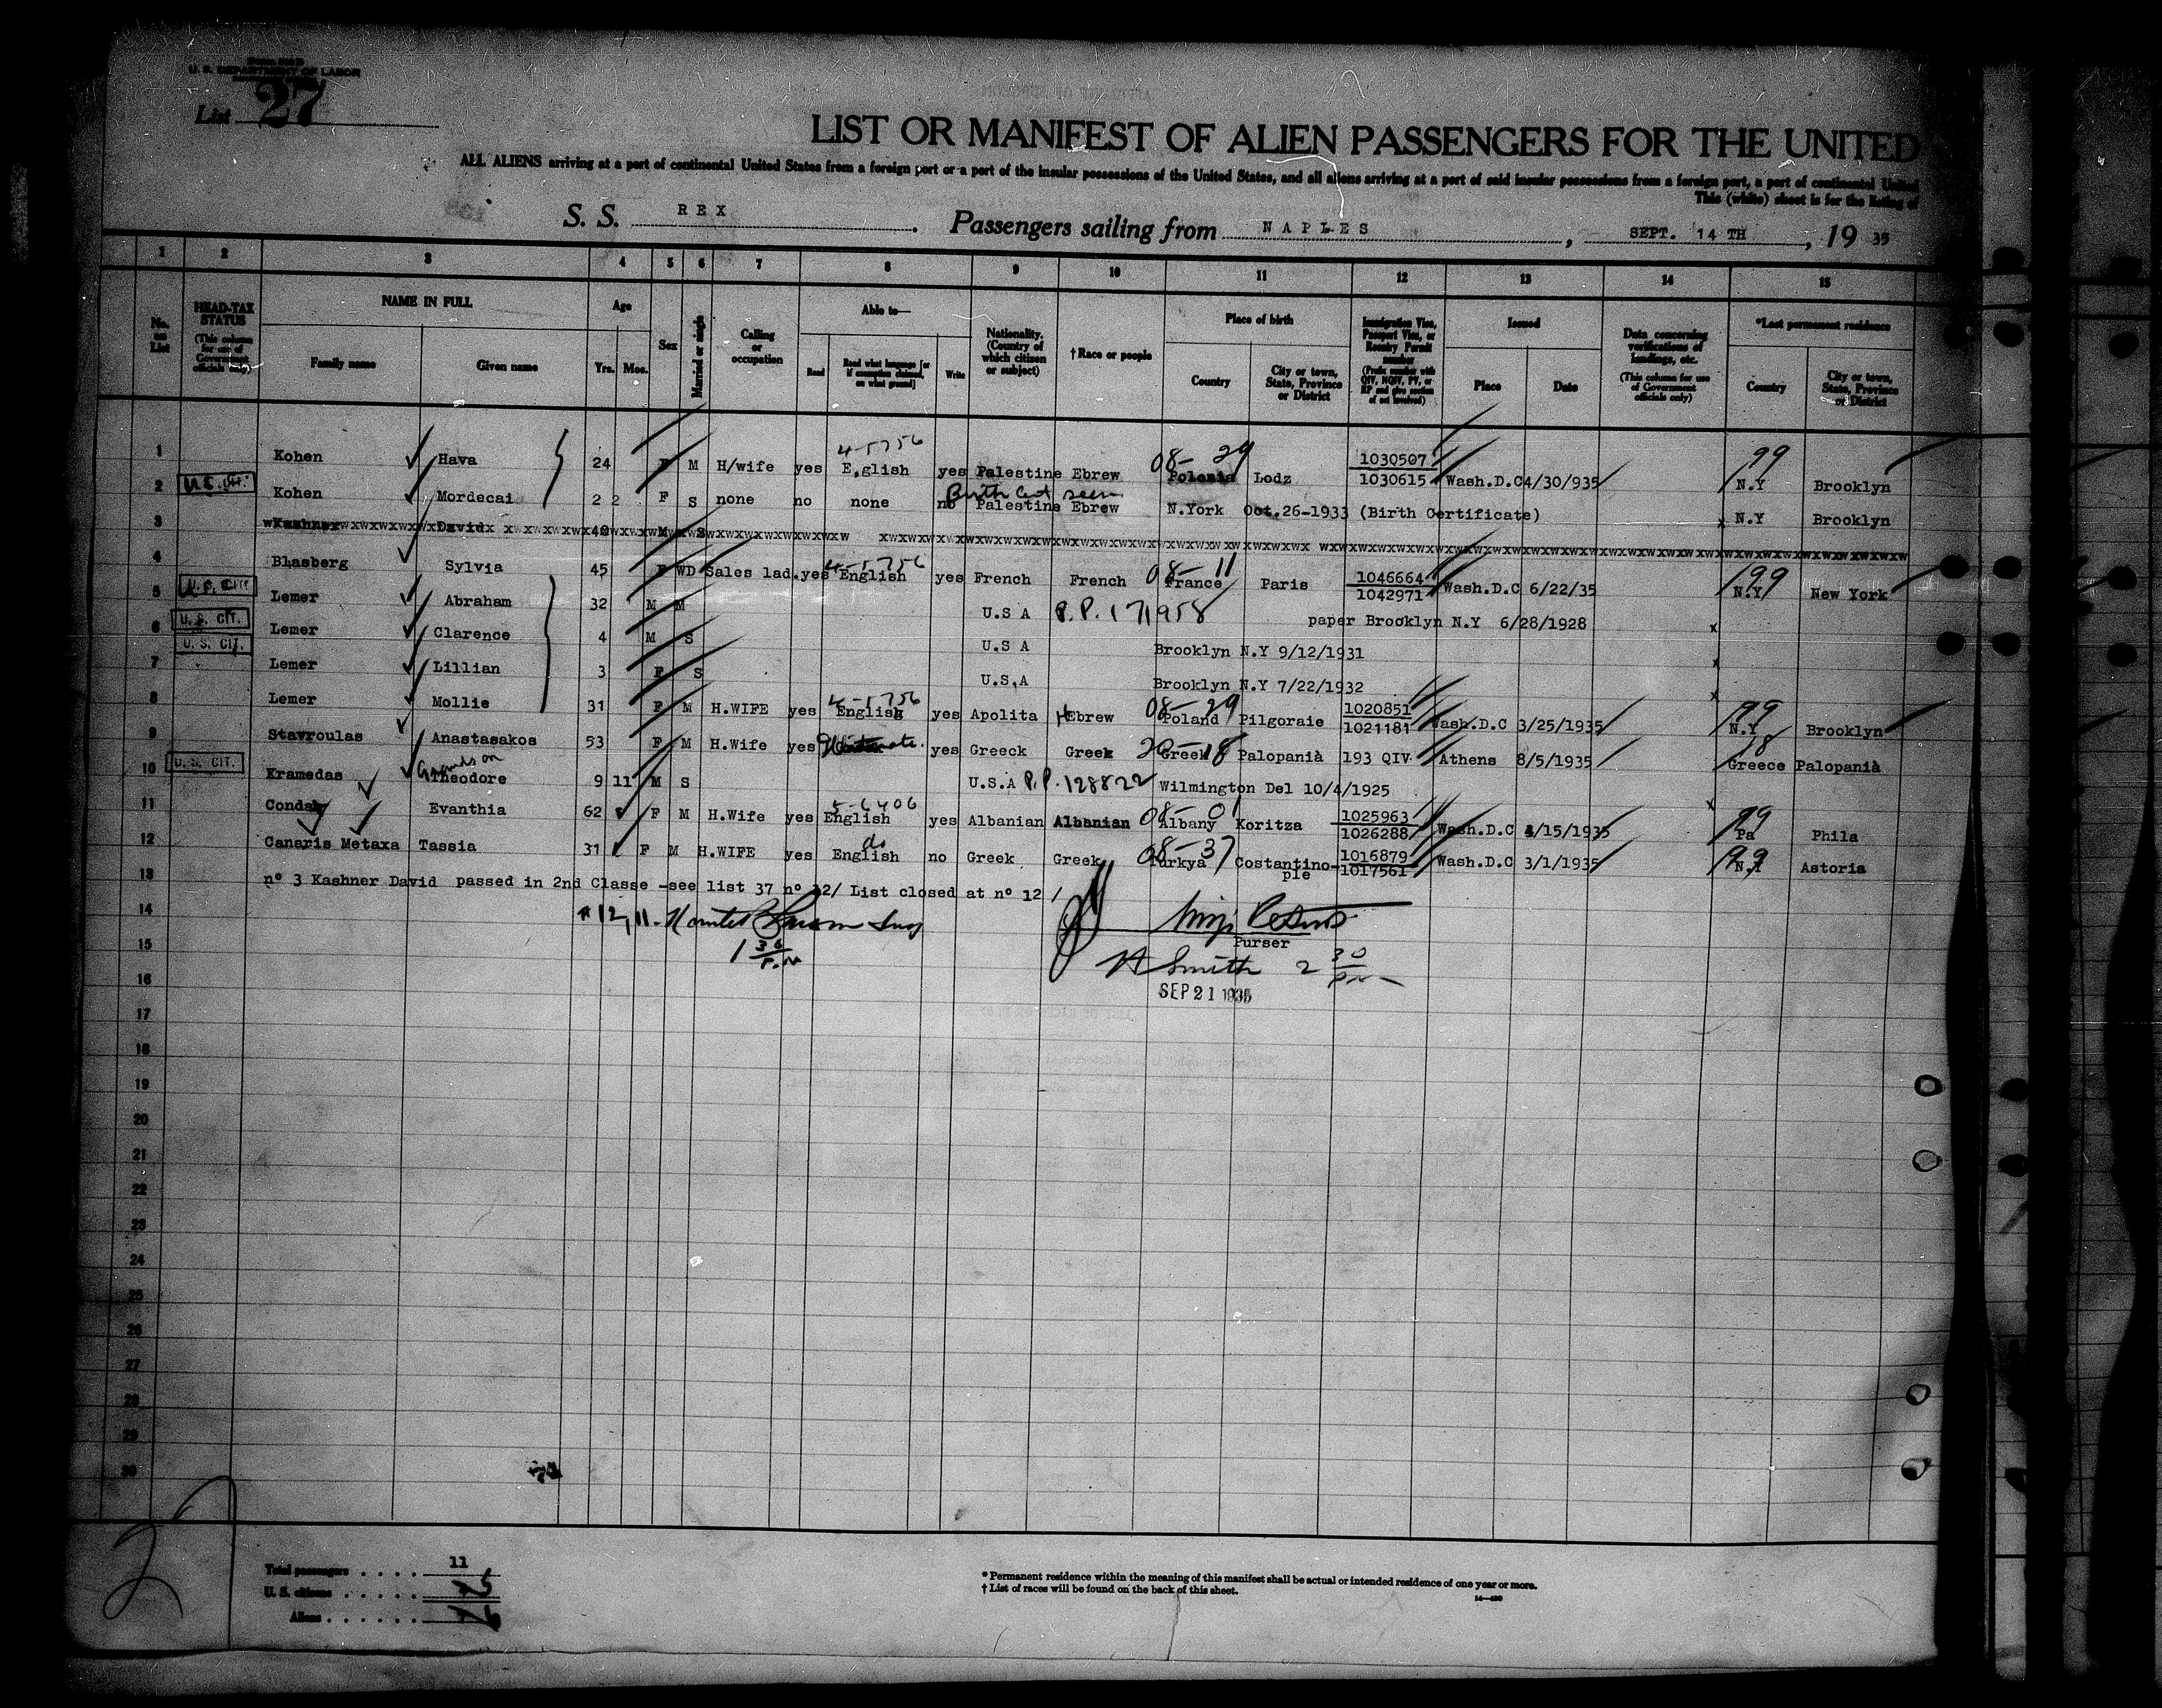 U. S. DEPARTMENT OF LABOR
List 27
LIST OR MANIFEST OF ALIEN PASSENGERS FOR THE UNITED
ALL ALIENS arriving at a port of continental United States from a foreign port or a port of the insular possessions of the United States, and all aliens arriving at a port of said insular possessions from a foreign port, a port of continental United
This (white) sheet is for the listing of
S. S. REX. Passengers sailing from NAPLES, SEPT. 14 TH, 19 35
1 2 3 4 5 6 7 8 9 10 11 12 13 14 15
No. on List
HEAD-TAX STATUS (This column for use of Government officials only)
NAME IN FULL Family name Given name
Age Yrs. Mos.
Sex
Married or single
Calling or occupation
Able to— Read Read what language [or if exemption claimed, on what ground] Write
Nationality. (Country of which citizen or subject)
†Race or people
Place of birth Country City or town, State, Province or District
Immigration Visa, Passport Visa, or Reentry Permit number (Prefix number with QIV, NQIV, PV, or RP and give section of act involved)
Issued Place Date
Data concerning verifications of landings, etc. (This column for use of Government officials only)
*Last permanent residence Country City or town, State, Province or District
1 Kohen Hava 24 F M H/wife yes E,glish 4-5756 yes Palestine Ebrew 08-29 Polonia Lodz 1030507 1030615 Wash.D.C 4/30/935 99 N.Y Brooklyn
2 U.S. CIT. Kohen Mordecai 2 2 F S none no none no Birth Cert seen Palestine Ebrew N.York Oct.26-1933 (Birth Certificate) x N.Y Brooklyn
3 Kashner David 40 M S
4 Blasberg Sylvia 45 F WD Sales lad. yes English 4-5756 yes French French 08-11 France Paris 1046664 1042971 Wash.D.C 6/22/35 99 N.Y New York
5 U.S. CIT. Lemer Abraham 32 M M U.S A P.P. 171958 paper Brooklyn N.Y 6/28/1928 x
6 U. S. CIT. Lemer Clarence 4 M S U.S A Brooklyn N.Y 9/12/1931 x
7 U. S. CIT. Lemer Lillian 3 F S U.S,A Brooklyn N.Y 7/22/1932 x
8 Lemer Mollie 31 F M H.WIFE yes English 4-5756 yes Apolita Hebrew 08-29 Poland Pilgoraie 1020851 1021181 Wash.D.C 3/25/1935 99 N.Y Brooklyn
9 Stavroulas Anastasakos 53 F M H.Wife yes yes Greeck Greek 20-18 Greek Palopanià 193 QIV Athens 8/5/1935 18 Greece Palopanià
10 U. S. CIT. Kramedas Grandson Theodore 9 11 M S U.S.A P.P. 128822 Wilmington Del 10/4/1925 x
11 Conda Evanthia 62 F M H.Wife yes English 5-6406 yes Albanian Albanian 08-01 Albany Koritza 1025963 1026288 Wash.D.C 4/15/1935 99 Pa Phila
12 Canaris Metaxa Tassia 31 F M H.WIFE yes English do no Greek Greek 08-37 Turkya Costantinople 1016879 1017561 Wash.D.C 3/1/1935 99 N.Y Astoria
13 nº 3 Kashner David passed in 2nd Classe -see list 37 nº 12/ List closed at nº 12 /
14 # 12, 11.
Purser
15 1 30 P.M
Smith 2 30 P.M
16 SEP 21 1935
17
18
19
20
21
22
23
24
25
26
27
28
29
30
Total passengers . . . . 11
U. S. citizens . . . . . 5
Aliens . . . . . . 6
* Permanent residence within the meaning of this manifest shall be actual or intended residence of one year or more.
† List of races will be found on the back of this sheet.